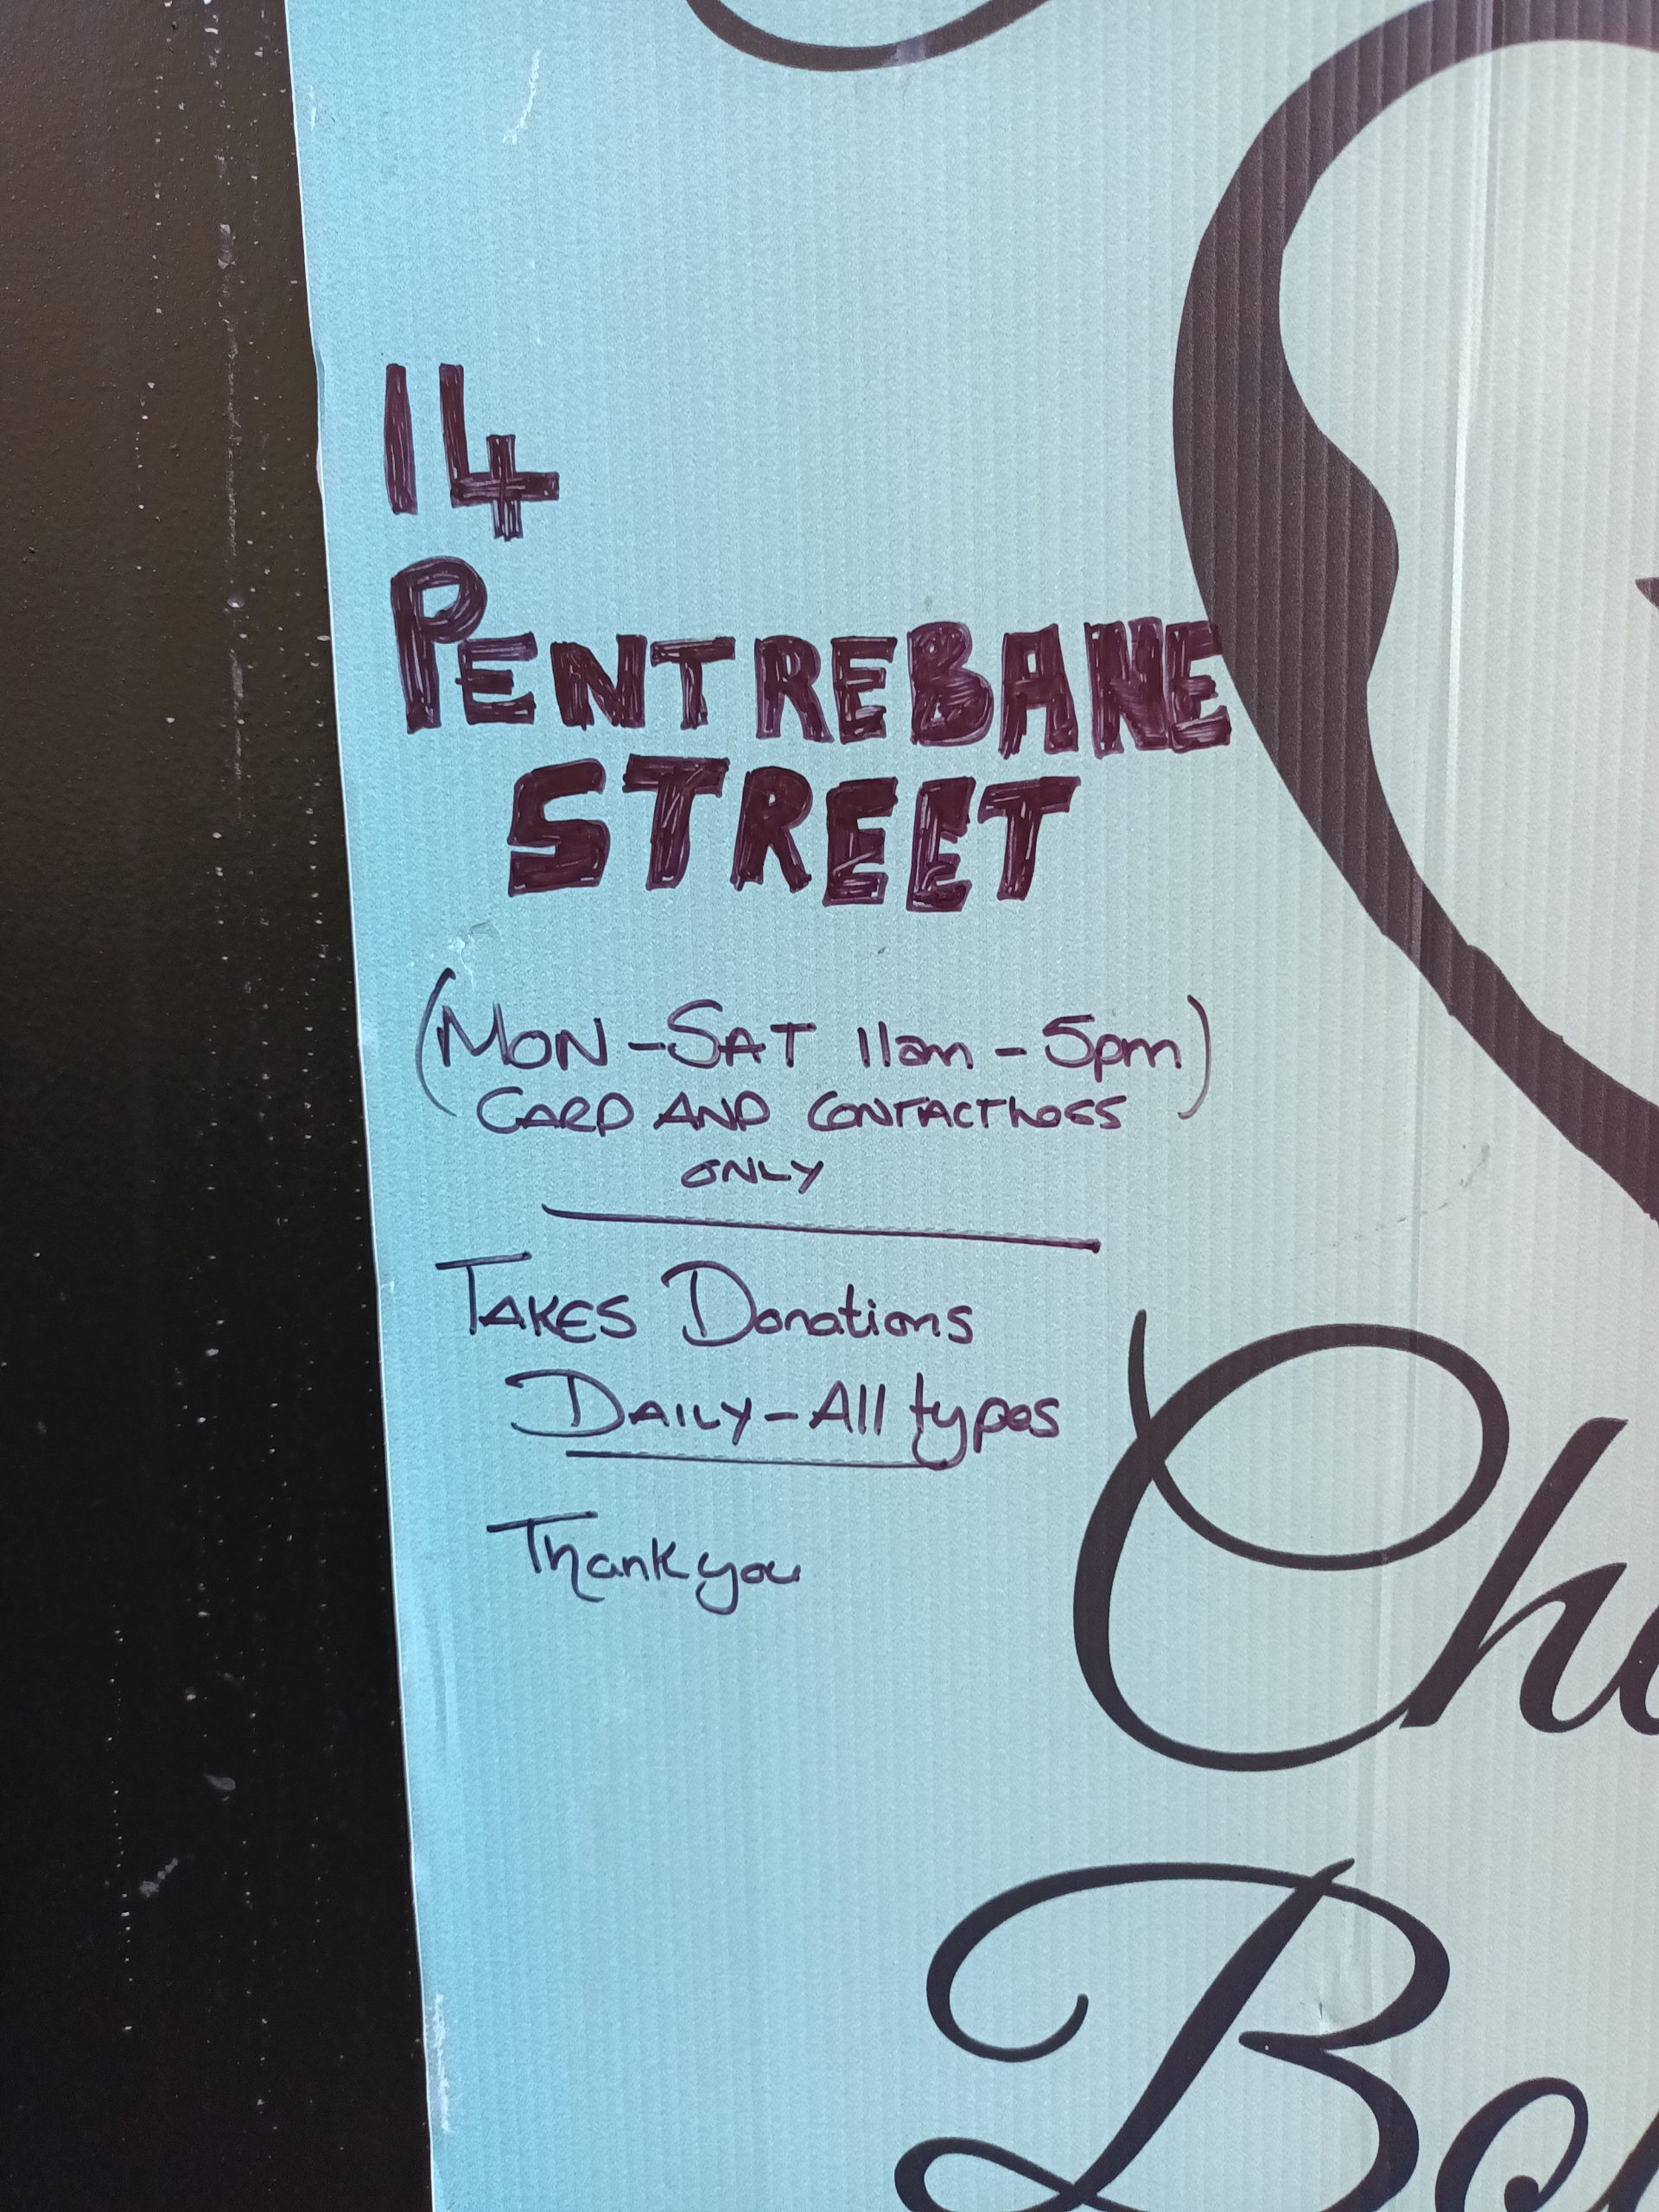 14
PENTREBANE
STREET
(MON-SAT 11am - 5pm)
CARD AND CONTACTLESS
ONLY
TAKES Donations
DAILY - All types
Thank you